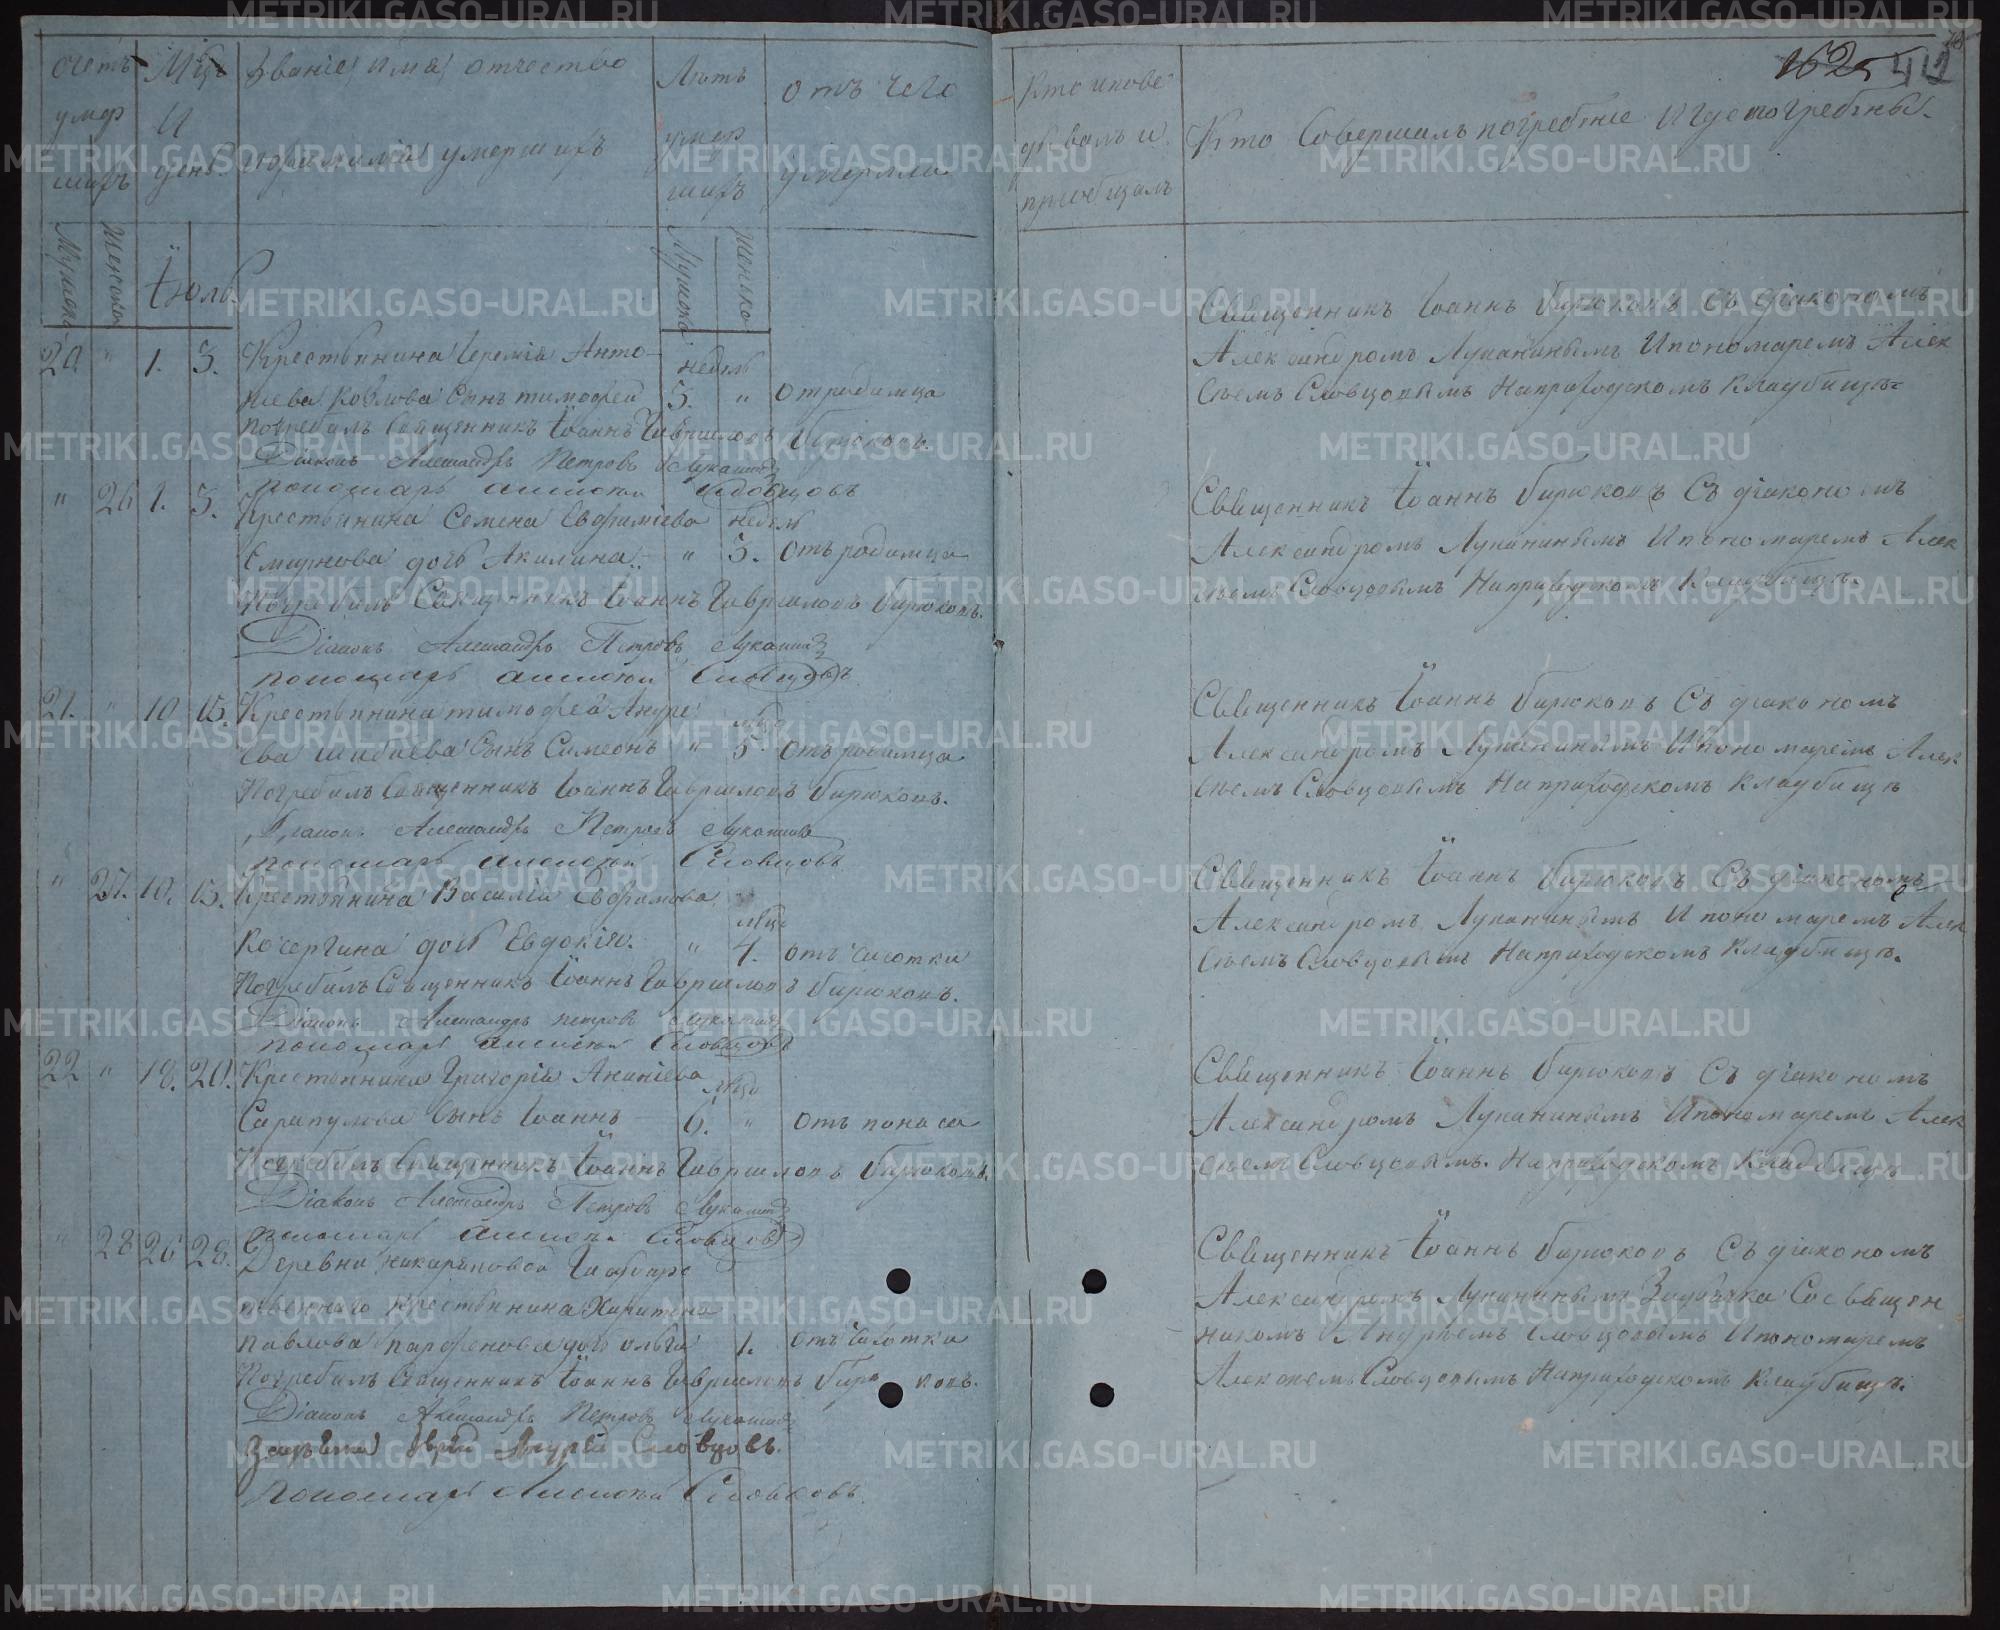 счетъ
умер
шихъ
Мцъ
и
день
Званіе имя отчество
и фамилія умершихъ
Лѣтъ
умер
шихъ
отъ чего
умерли
Мужска
Женска
Іюль
Мужска
Женска
20 " 1. 3. Крестьянина Іереміи Анто-
нѣева Козлова Сынъ тимофей
недѣль
5. " от родимца
Погребалъ Священникъ Іоаннъ Гавриловъ Бирюковъ.
Діаконъ Александръ Петровъ Луканинъ
пономарь алексѣй Словцовъ
" 26 1. 3. Крестьянина Семена Евфиміева
Смирнова дочь Акилина.
недѣль
" 3. отъ родимца
Погребалъ Священникъ Іоаннъ Гавриловъ Бирюковъ.
Діаконъ Александръ Петровъ Луканинъ
пономарь алексѣй Словцовъ
21. " 10 15. Крестьянина тимофея Андре
ева Сынъ Симеонъ
мцъ
" 5. отъ родимца
Погребалъ Священникъ Іоаннъ Гавриловъ Бирюковъ.
Діаконъ Александръ Петровъ Луканинъ
пономарь алексѣй Словцовъ
" 27. 10. 13. Крестьянина Василія Евфимова
Кочергина дочь Евдокія.
мцъ
" 4. отъ чахотки
Погребалъ Священникъ Іоаннъ Гавриловъ Бирюковъ.
Діаконъ Александръ петровъ Луканинъ
пономарь алексѣй Словцовъ
22 " 18. 20. Крестьянина Григорія Ананіева
Сарапулова Сынъ Іоаннъ
мцъ
6. " отъ поноса
Погребалъ Священникъ Іоаннъ Гавриловъ Бирюковъ.
Діаконъ Александръ Петровъ Луканинъ
пономарь алексѣй Словцовъ
" 28 26 28. Деревни Государс
твеннаго крестьянина Харитона
павлова парфенова дочь ольга 1. отъ чахотки
Погребалъ Священникъ Іоаннъ Гавриловъ Бирюковъ.
Діаконъ Александръ Петровъ Луканинъ
Андрей Словцовъ.
Пономарь Алексѣй Словцовъ
1625
Кто испове
дывалъ и
пріобщалъ
Кто Совершалъ погребеніе и где погребены.
Священникъ Іоаннъ Бирюковъ Съ діакономъ
Александромъ Луканинымъ И пономаремъ Алек
сѣемъ Словцовымъ На приходскомъ Кладбищѣ
Священникъ Іоаннъ Бирюковъ Съ діакономъ
Александромъ Луканинымъ И пономаремъ Алек
сѣемъ Словцовымъ На приходскомъ Кладбищѣ.
Священникъ Іоаннъ Бирюковъ Съ діакономъ
Александромъ Луканинымъ И пономаремъ Алек
сѣемъ Словцовымъ На приходскомъ Кладбищѣ
Священникъ Іоаннъ Бирюковъ Съ діакономъ
Александромъ Луканинымъ И пономаремъ Алек
сѣемъ Словцовымъ На приходскомъ Кладбищѣ.
Священникъ Іоаннъ Бирюковъ Съ діакономъ
Александромъ Луканинымъ И пономаремъ Алек
сѣемъ Словцовымъ. На приходскомъ Кладбищѣ
Священникъ Іоаннъ Бирюковъ Съ діакономъ
Александромъ Луканинымъ Со священ
никомъ Андреемъ Словцовымъ И пономаремъ
Алексѣемъ Словцовымъ На приходскомъ Кладбищѣ.
METRIKI.GASO-URAL.RU